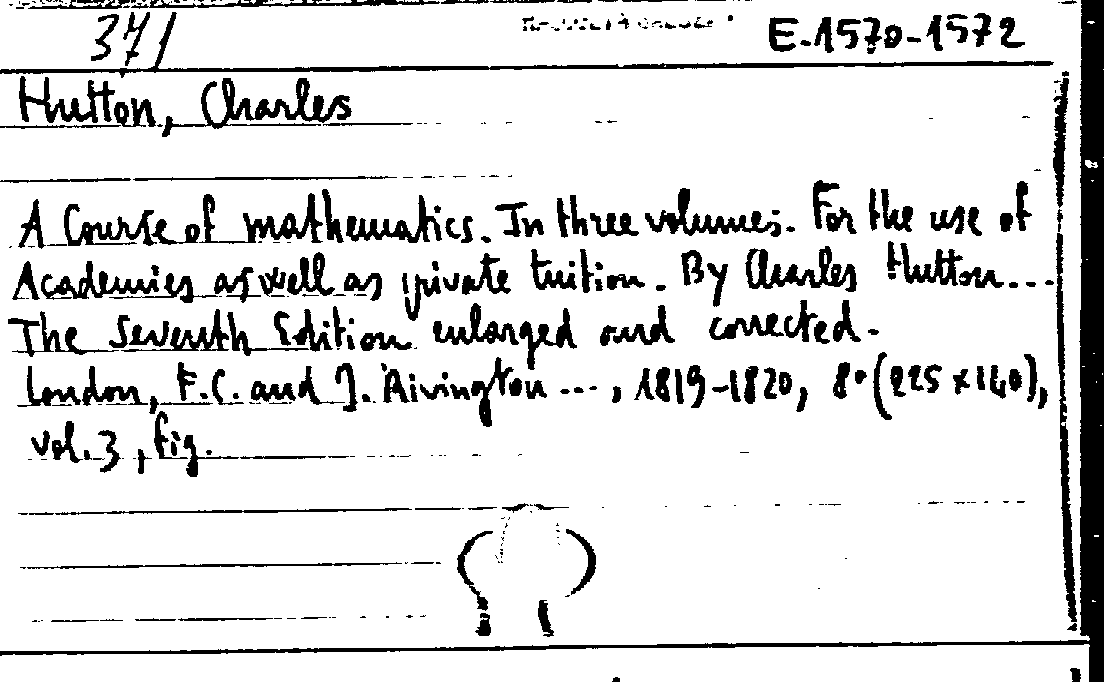 371
E.1570-1572
Hutton, Charles
A Course of mathematics. In three volumes. For the use of
Academies as well as private tuition. By Charles Hutton...
The Seventh Edition enlarged and corrected.
London, F.C. and J. Rivington ..., 1819-1820, 8° (225 x 140),
vol. 3, fig.